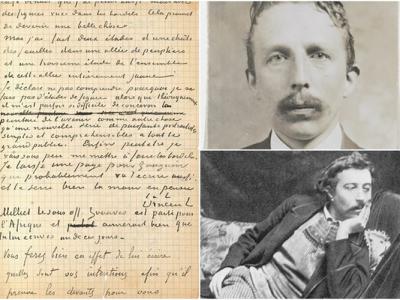 des figures vues dans les bordels. Cela promet
de devenir une belle chose.
Moi j'ai fait deux études d'une chute
des feuilles dans une allée de peupliers
et une troisième étude de l'ensemble
de cette allée entièrement jaune.
Je déclare ne pas comprendre pourquoi je ne
fais pas d'études de figure alors que théoriquement
il m'est parfois si difficile de concevoir la
peinture de l'avenir comme autre chose
qu'une nouvelle série de puissants portraitistes
simples et compréhensibles à tout le
grand public. Enfin peutêtre je
vais sous peu me mettre à faire les bordels.
Je laisse une page pour Gauguin
qui probablement va t'écrire aussi
et te serre bien la main en pensée
t. à t.
Vincent
Milliet le sous off. Zouaves est parti pour
l'Afrique et aimerait bien que
tu lui écrives un de ces jours.
Vous ferez bien en effet de lui écrire
quelles sont vos intentions afin qu'il
prenne les devants pour vous